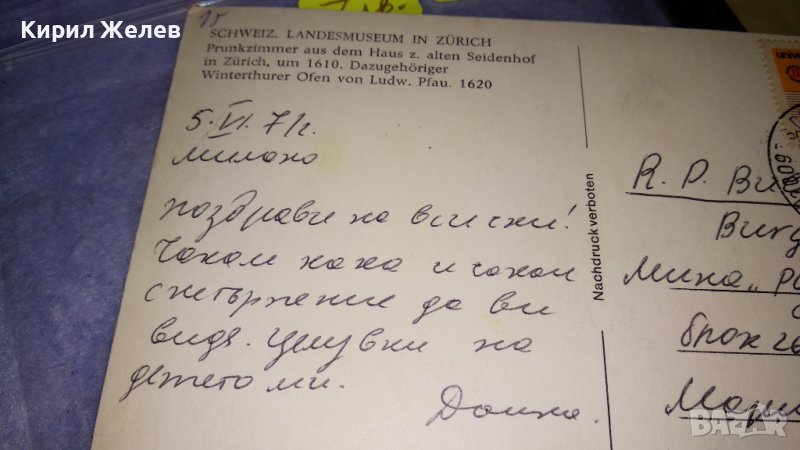 Кирил Желев
15
SCHWEIZ. LANDESMUSEUM IN ZÜRICH
Prunkzimmer aus dem Haus z. alten Seidenhof
in Zürich, um 1610. Dazugehöriger
Winterthurer Ofen von Ludw. Pfau. 1620
5.VI.71г.
Милано
поздрави на всички!
Чакам кака и чакам
с нетърпение да ви
видя. Целувки на
детето ми.
Донка.
Nachdruck verboten
R. P. Bu
Burg
Мина „
блок
Мари
univer
BAZAR